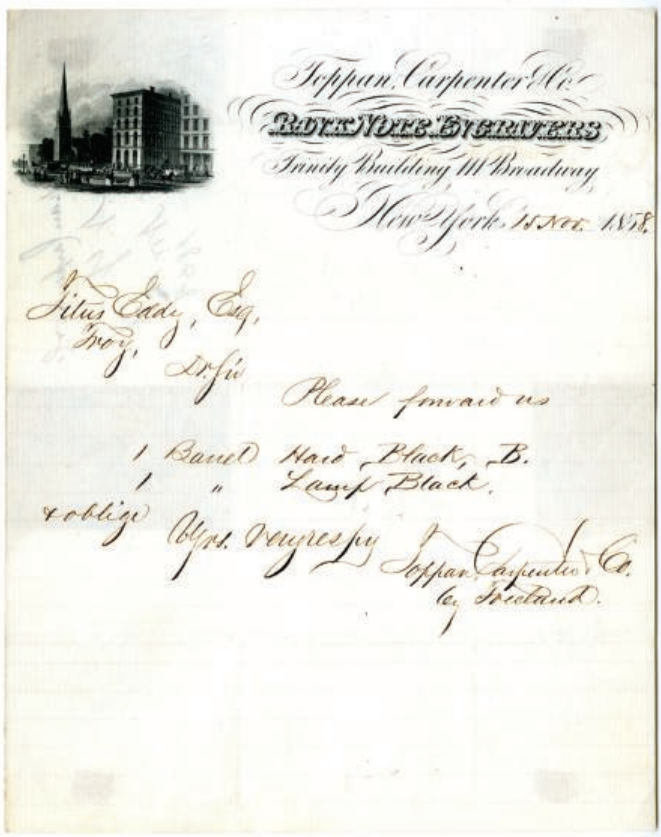 Toppan, Carpenter & Co.
BANK NOTE ENGRAVERS
Trinity Building 111 Broadway
New York, 15 Nov. 1858.
Titus Eddy, Esq,
Troy,
Dr. Sir
Please forward us
1 Barrel Hard Black, B.
1 " Lamp Black.
& oblige
Yrs. very respy
Toppan, Carpenter & Co.
by Freeland.